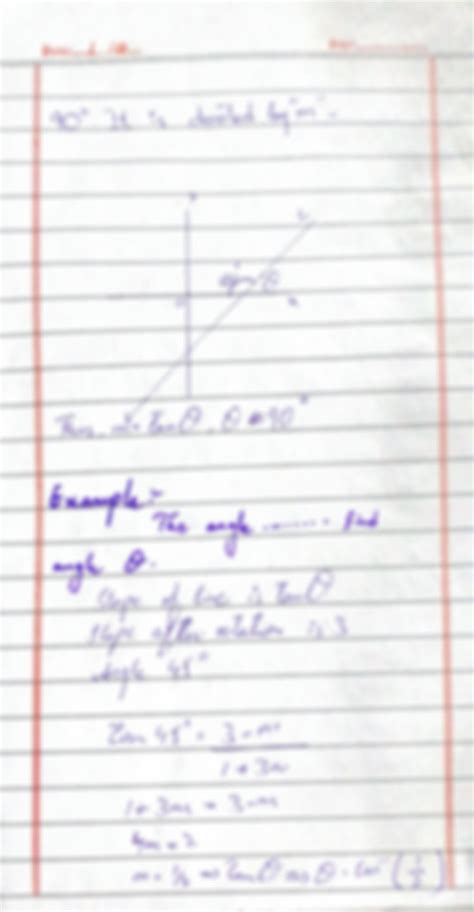 90° It is denoted by "m".
θ
Thus, m = tan θ, θ ≠ 90°
Example:-
The angle ........ find
angle θ.
Slope of line is tan θ
Slope after rotation is 3
Angle 45°
Tan 45° = 3 - m
1 + 3m
1 + 3m = 3 - m
4m = 2
m = 1/2 ⇒ tan θ ⇒ θ = tan⁻¹ (1/2)